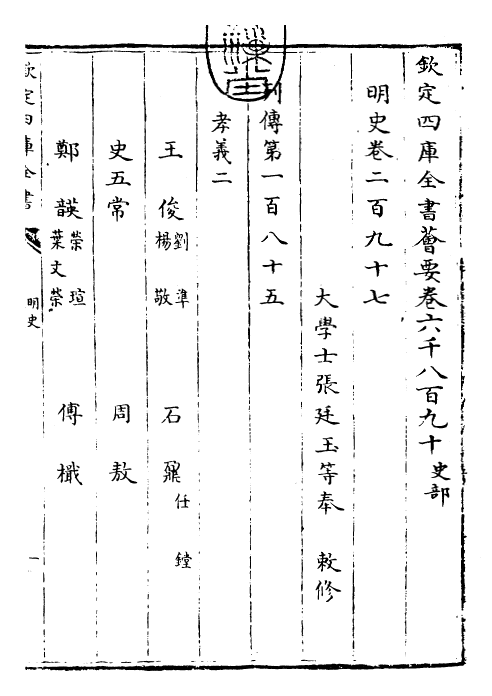 欽定四庫全書薈要卷六千八百九十史部
明史卷二百九十七
大學士張廷玉等奉 敕修
列傳第一百八十五
孝義二
王俊 劉準 楊敬 石鼐 任鏜
史五常 周敖
鄭韺 榮瑄 葉文榮 傅檝
欽定四庫全書 明史 一